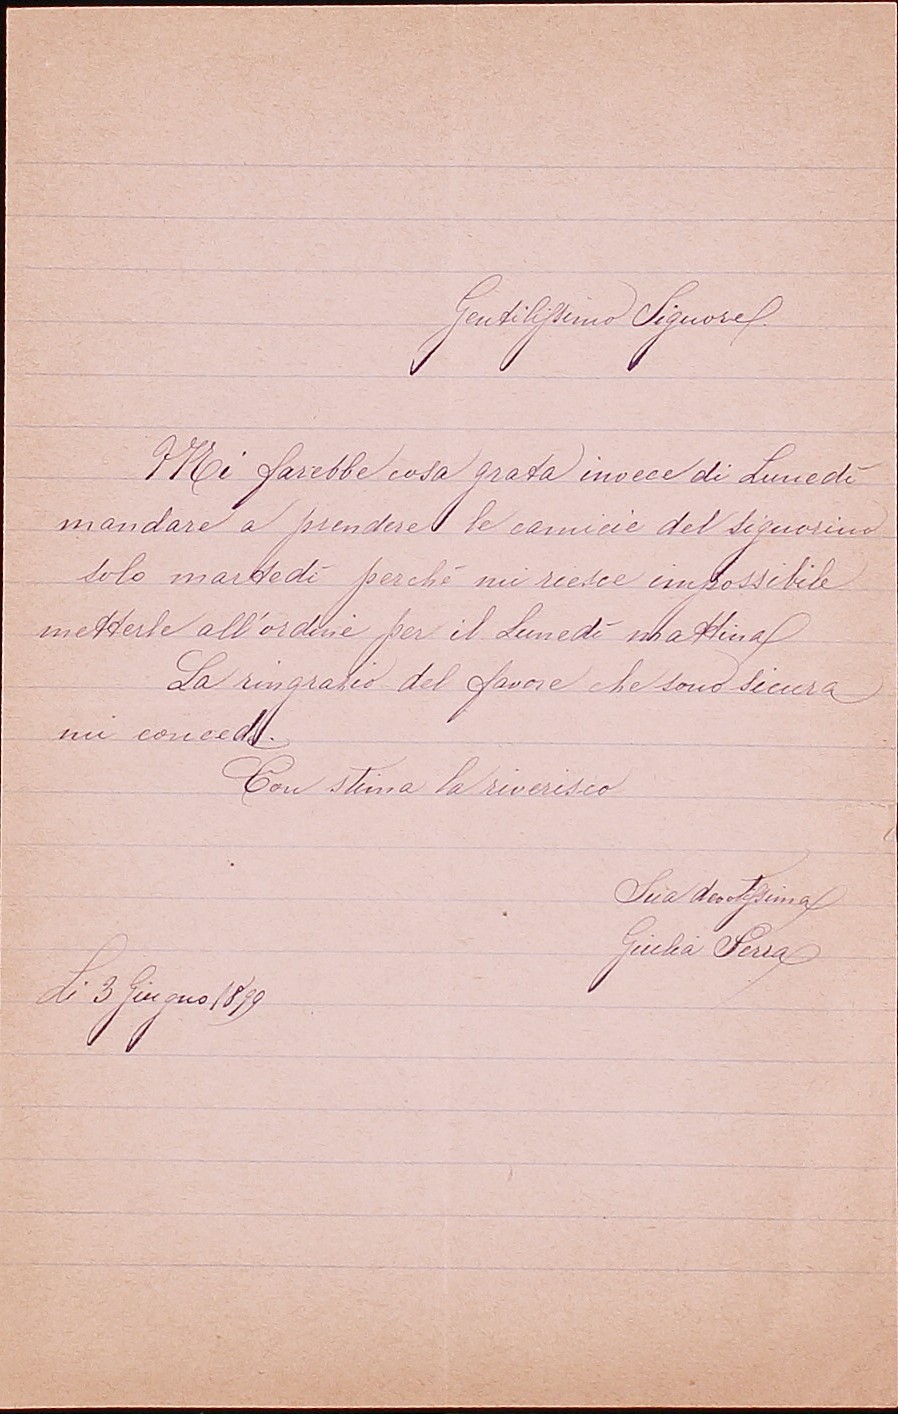 Gentilissimo Signore.
Mi farebbe cosa grata invece di Lunedì
mandare a prendere le camicie del signorino
solo martedì perchè mi riesce impossibile
metterle all'ordine per il Lunedì mattina
La ringrazio del favore che sono sicura
mi conced.
Con stima la riverisco
Sua devotissima
Giulia Serra
Li 3 Giugno 1899